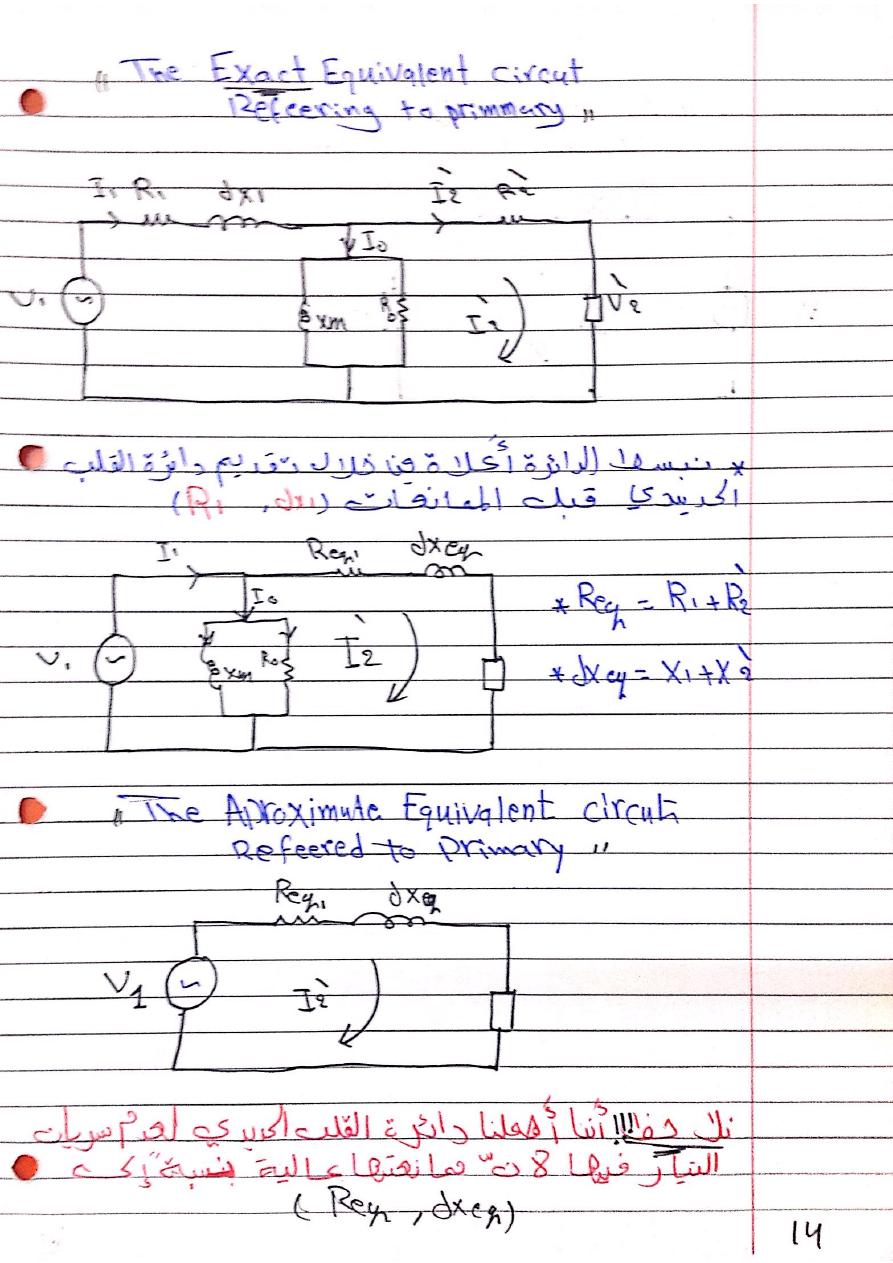 " The Exact Equivalent circut
Refeering to primmary "
I₁ R₁ jx₁ I₂̀ R₂̀
I₀
V₁ xm R₀ I₂̀ V₂̀
* نبسط الدائرة أعلاة من خلال تقديم دائرة القلب
الحديدي قبل الممانعات (R₁ , jx₁)
I₁ Req₁ jxeq
I₀ * Req = R₁+R₂̀
V₁ xm R₀ I₂̀ * jXeq = X₁+X₂̀
" The Aproximate Equivalent circut
Refeered to primary "
Req₁ jxeq
V1 I₂̀
نلاحظ!!! أننا أهملنا دائرة القلب الحديدي لعدم سريان
التيار فيها لأن ممانعتها عالية بنسبة إلى
( Req , jxeq)
14